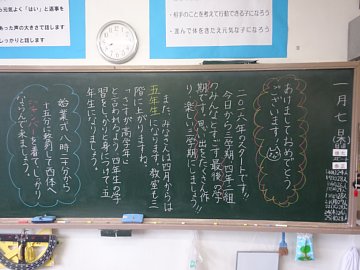 ら元気よく「はい」と返事を
あった声の大きさで話します
しっかりと話します
・相手のことを考えて行動できる子になろう
・並んで体をきたえ元気な子になろう
一月七日(木)
あけましておめでとう
ございます!
二〇一六年のスタートです!!
今日から三学期。四年二組
のみんなとすごす最後の学
期です。思い出をたくさん作
り、楽しい三学期にしましょう!!
また、みなさんは四月からは
五年生になります。教室も三
階に上がりますね。
「さすが高学年!」
と言われるよう、四年生の学
習をしっかりと身につけて五
年生になりましょう。
始業式は八時二十分から
十五分に整列して西体へ
ならんで来ましょう。